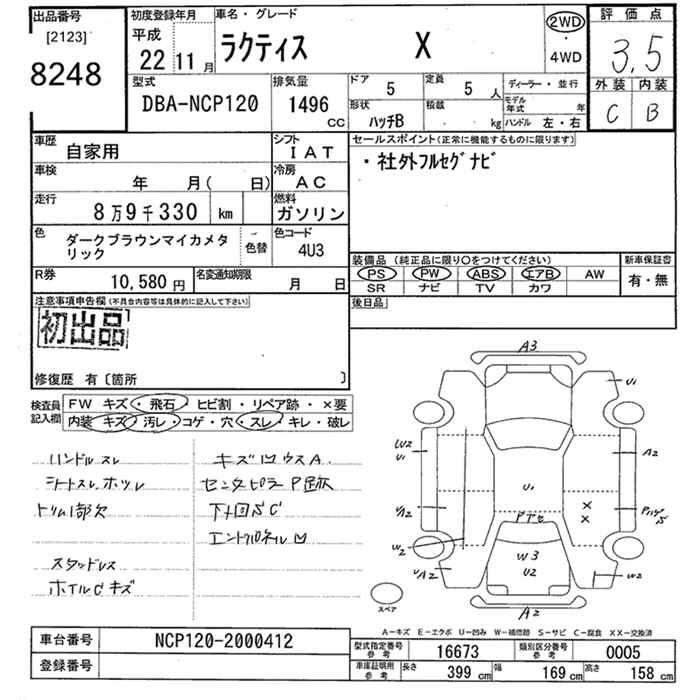 出品番号
[2123]
8248
初度登録年月
平成
22年11月
車名・グレード
ラクティス X
2WD
・
4WD
評価点
3.5
外装 内装
C B
型式
DBA-NCP120
排気量
1496
CC
ドア 5
定員 5 人
形状 ハッチB
積載 kg
ディーラー・並行
モデル年式 年
ハンドル 左・右
車歴 自家用
シフト IAT
車検 年 月( 日)
冷房 AC
走行 8万9千330 km
燃料 ガソリン
色 ダークブラウンマイカメタリック
色替
色コード 4U3
R券 10,580円
名変通知期限 月 日
セールスポイント(正常に機能するものに限ります)
・社外フルセグナビ
装備品 (純正品に限り○をつけてください)
PS PW ABS エアB AW
SR ナビ TV カワ
新車保証書
有・無
後日品
注意事項申告欄(不具合内容等は具体的に記入して下さい)
初出品
修復歴 有〔箇所 〕
検査員記入欄
FW キズ・飛石・ヒビ割・リペア跡・×要
内装 キズ・汚レ・コゲ・穴・スレ・キレ・破レ
ハンドルスレ
シートスレ ホツレ
トリム1部欠
スタッドレス
ホイルCキズ
キズ凹ウスA
センタピラP
下廻りSC
エントリパネル凹
A3
U1
W2
U1
A2
U1
X
X
ドアセ
W2
W3
U2
W2
A2
スペア
A-キズ E-エクボ U-凹み W-補修跡 S-サビ C-腐食 XX-交換済
車台番号 NCP120-2000412
登録番号
型式指定番号 参考 16673
類別区分番号 参考 0005
車庫証明用 参考
長さ 399 cm
幅 169 cm
高さ 158 cm